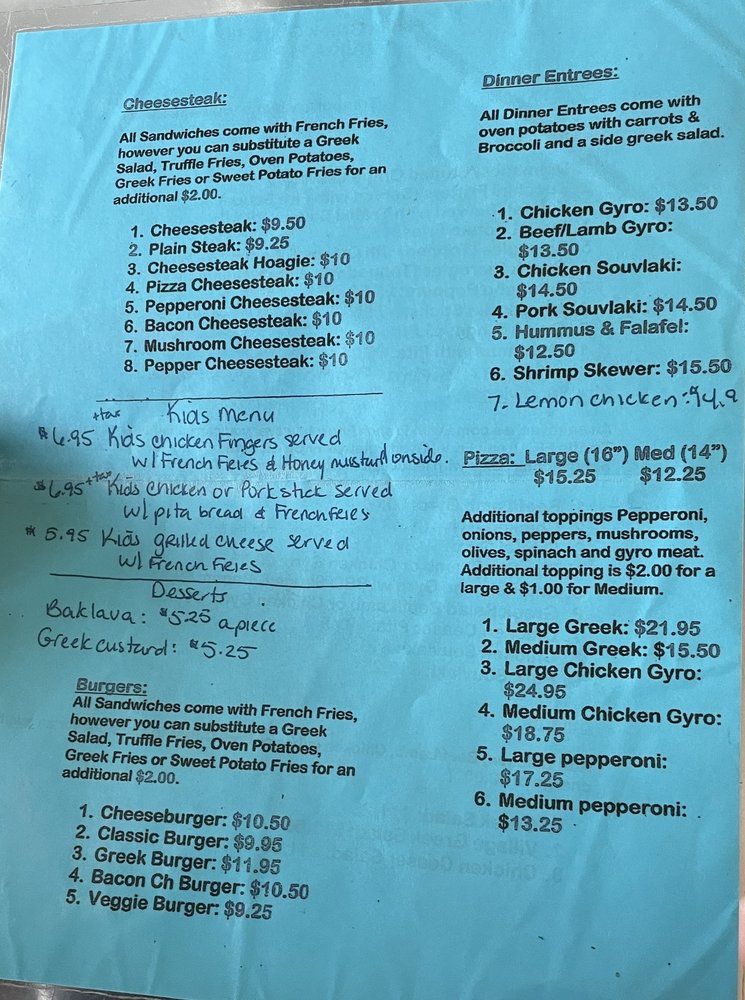 Cheesesteak:
All Sandwiches come with French Fries,
however you can substitute a Greek
Salad, Truffle Fries, Oven Potatoes,
Greek Fries or Sweet Potato Fries for an
additional $2.00.
1. Cheesesteak: $9.50
2. Plain Steak: $9.25
3. Cheesesteak Hoagie: $10
4. Pizza Cheesesteak: $10
5. Pepperoni Cheesesteak: $10
6. Bacon Cheesesteak: $10
7. Mushroom Cheesesteak: $10
8. Pepper Cheesesteak: $10
Kids Menu
$6.95 +tax Kids chicken Fingers served
w/ French Fries & Honey mustard onside.
$6.95 +tax Kids chicken or Pork stick served
w/ pita bread & French fries
$5.95 Kids grilled cheese served
w/ French Fries
Desserts
Baklava: $5.25 a piece
Greek custard: $5.25
Burgers:
All Sandwiches come with French Fries,
however you can substitute a Greek
Salad, Truffle Fries, Oven Potatoes,
Greek Fries or Sweet Potato Fries for an
additional $2.00.
1. Cheeseburger: $10.50
2. Classic Burger: $9.95
3. Greek Burger: $11.95
4. Bacon Ch Burger: $10.50
5. Veggie Burger: $9.25
Dinner Entrees:
All Dinner Entrees come with
oven potatoes with carrots &
Broccoli and a side greek salad.
1. Chicken Gyro: $13.50
2. Beef/Lamb Gyro:
$13.50
3. Chicken Souvlaki:
$14.50
4. Pork Souvlaki: $14.50
5. Hummus & Falafel:
$12.50
6. Shrimp Skewer: $15.50
7. Lemon chicken:
Pizza: Large (16”) Med (14”)
$15.25 $12.25
Additional toppings Pepperoni,
onions, peppers, mushrooms,
olives, spinach and gyro meat.
Additional topping is $2.00 for a
large & $1.00 for Medium.
1. Large Greek: $21.95
2. Medium Greek: $15.50
3. Large Chicken Gyro:
$24.95
4. Medium Chicken Gyro:
$18.75
5. Large pepperoni:
$17.25
6. Medium pepperoni:
$13.25